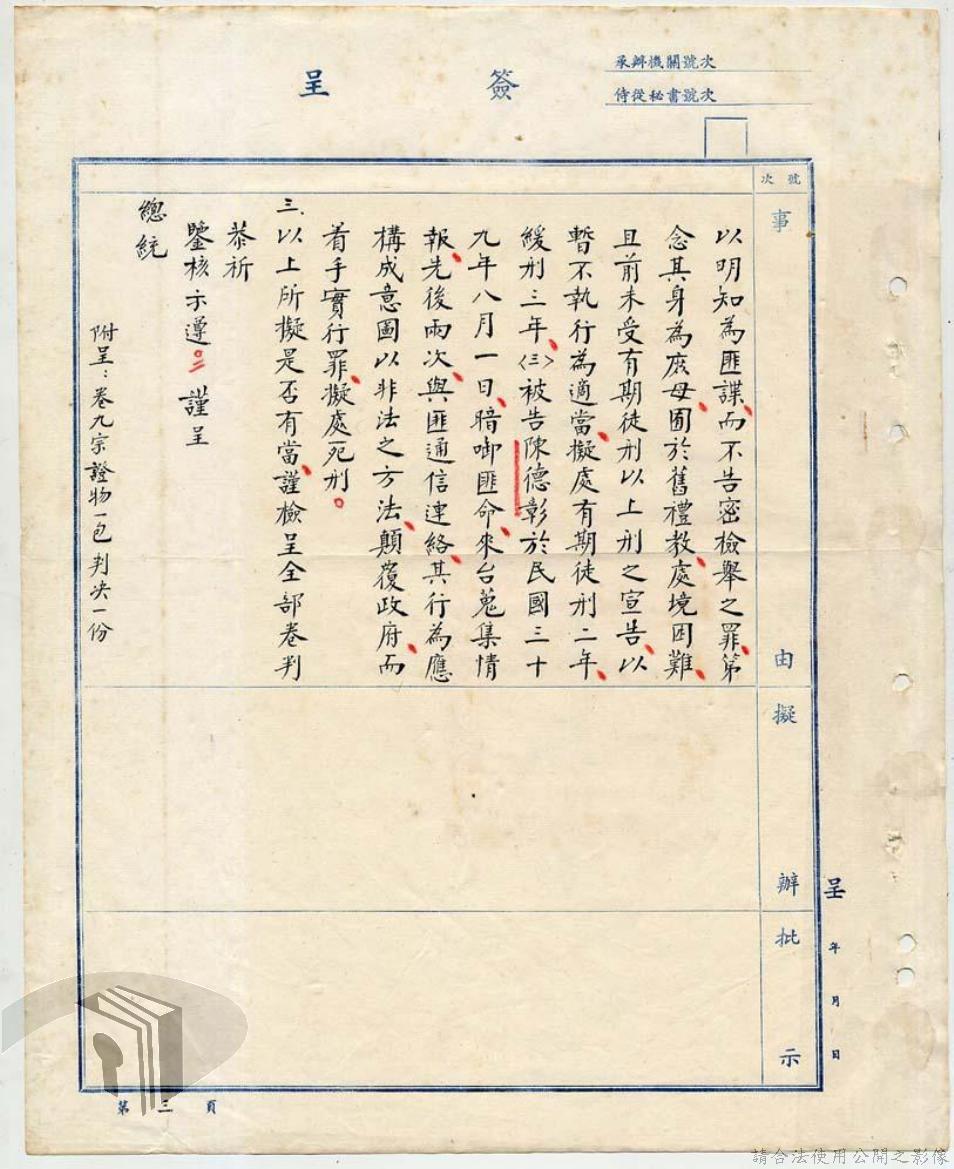 簽呈
承辦機關號次
侍從秘書號次
號次
事由
以明知為匪諜而不告密檢舉之罪第
念其身為庶母囿於舊禮教處境困難
且前未受有期徒刑以上刑之宣告以
暫不執行為適當擬處有期徒刑二年
緩刑三年〈三〉被告陳德彰於民國三十
九年八月一日暗啣匪命來台蒐集情
報先後兩次與匪通信連絡其行為應
構成意圖以非法之方法顛覆政府而
着手實行罪擬處死刑。
三、以上所擬是否有當謹檢呈全部卷判
恭祈
鑒核示遵 謹呈
總統
附呈:卷九宗證物一包判决一份
擬辦
批示
呈 年 月 日
第三頁
請合法使用公開之影像